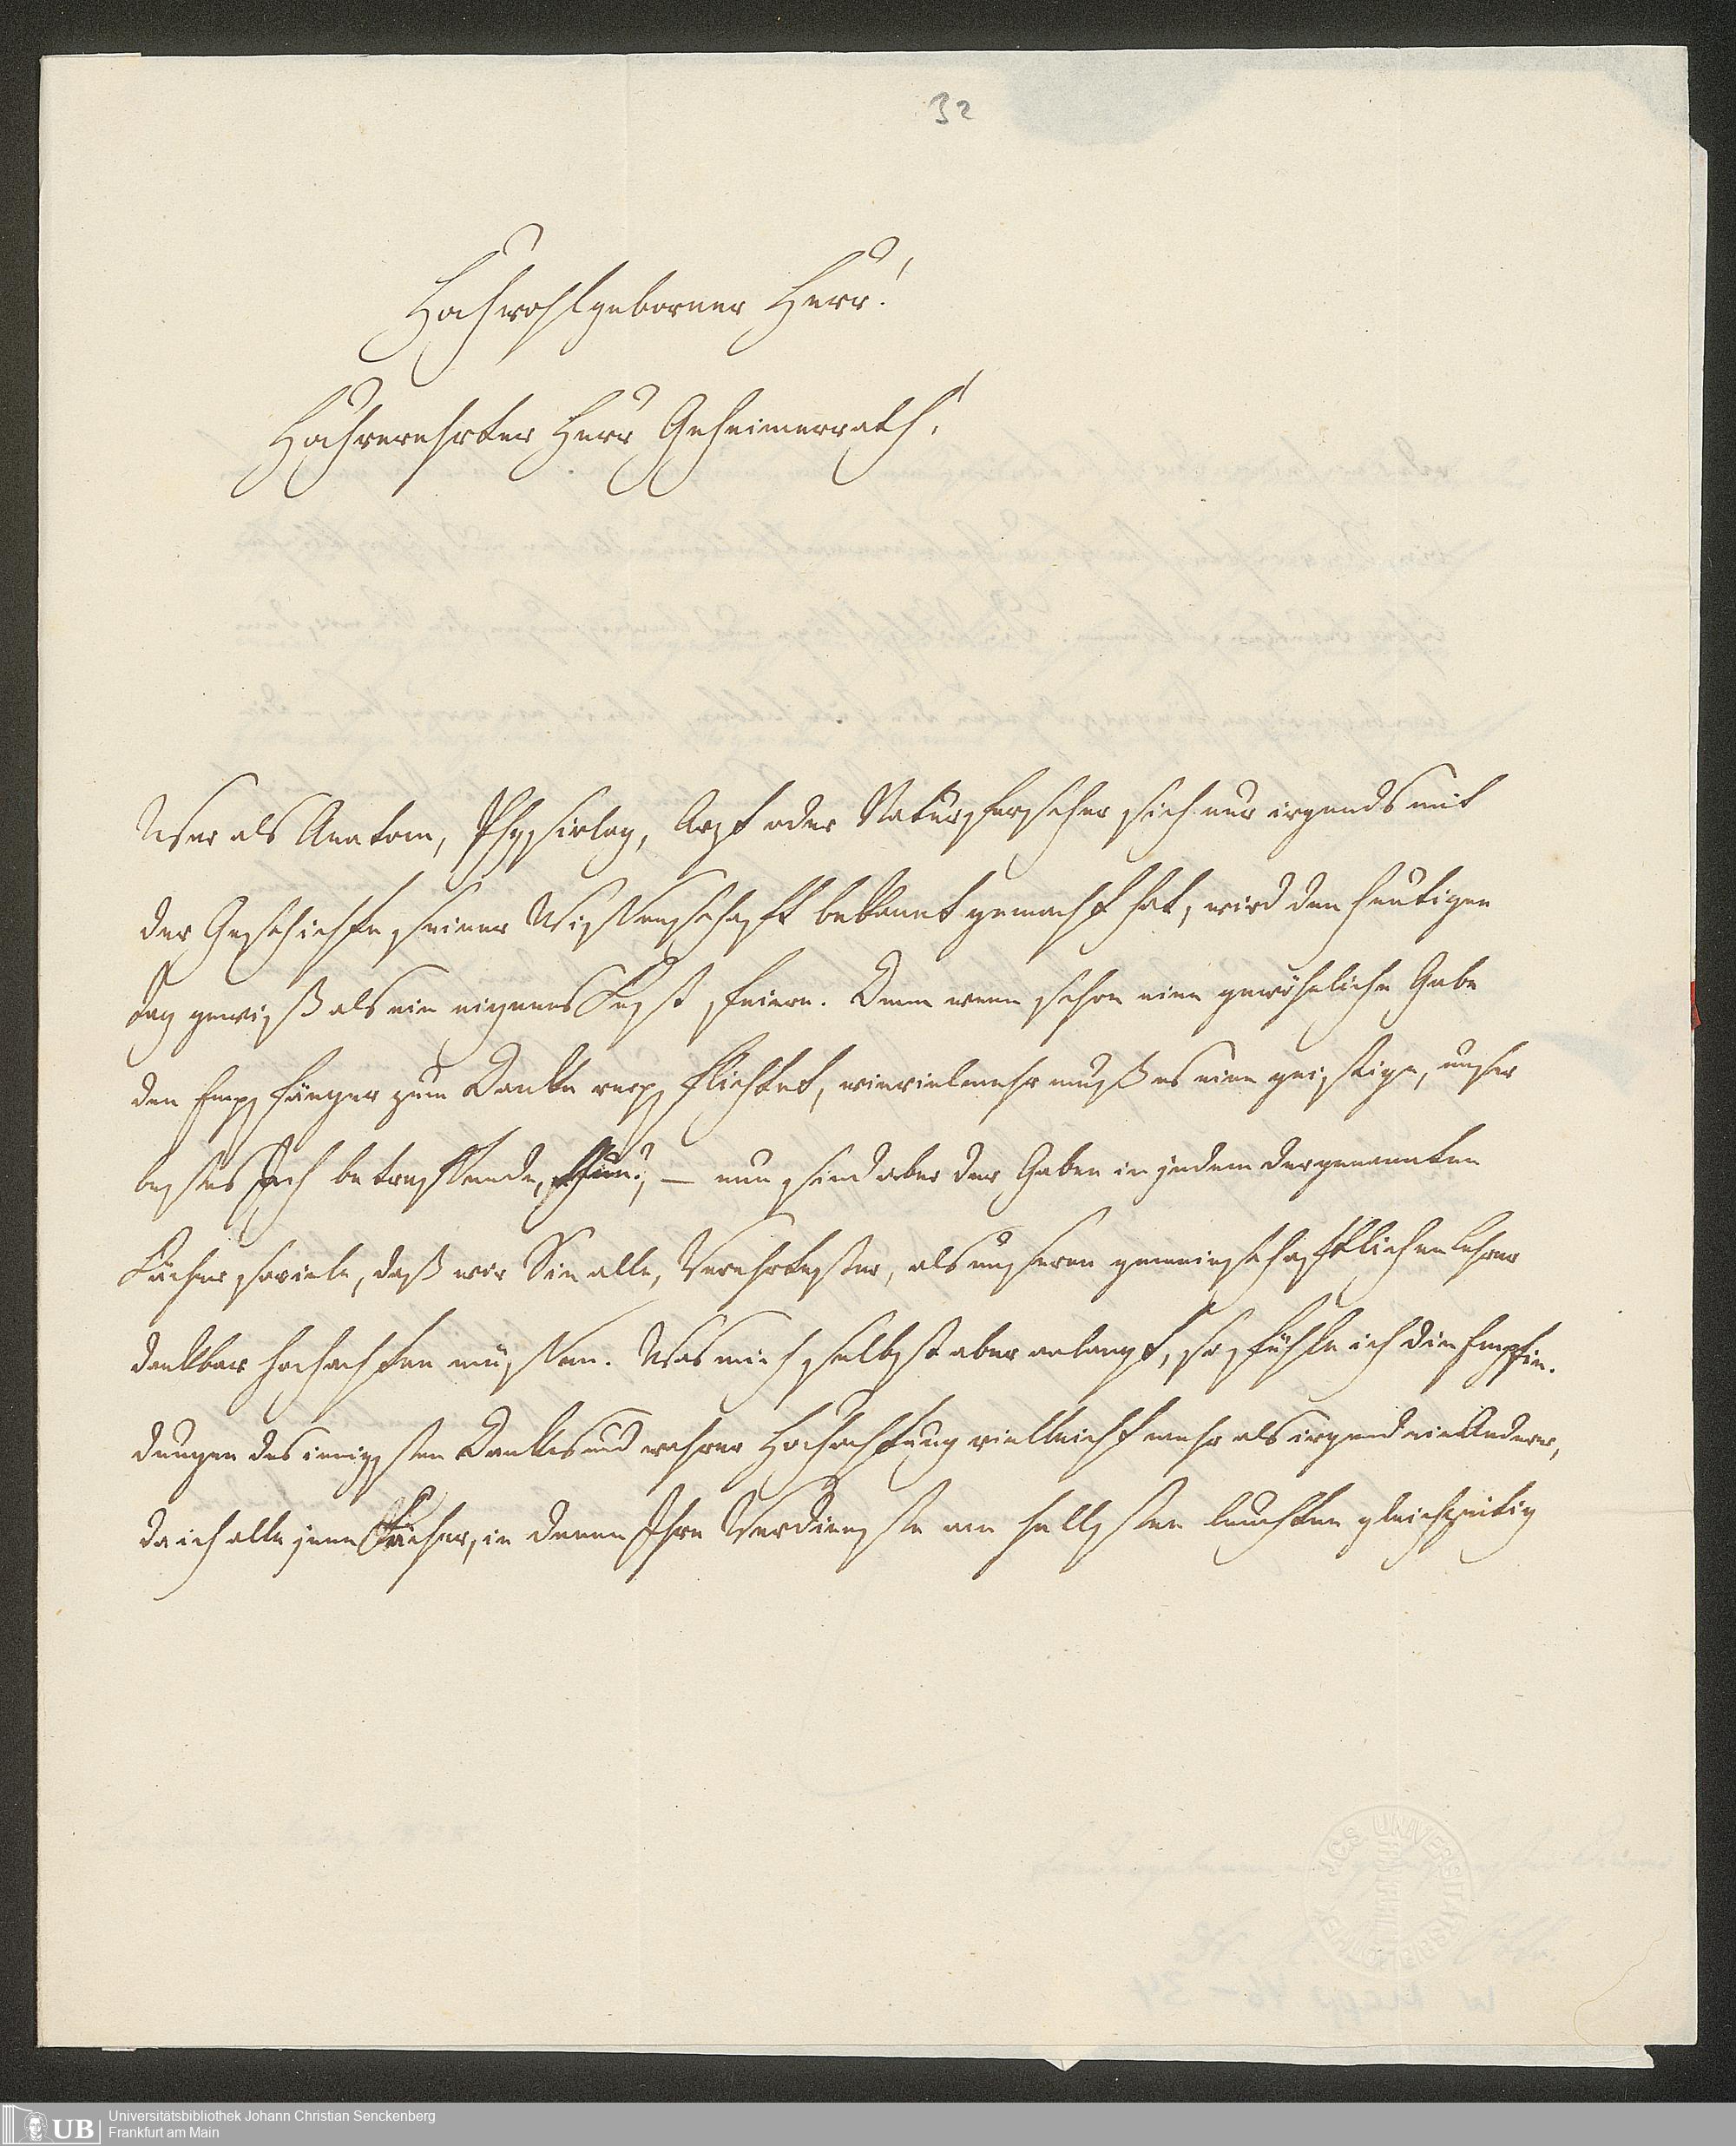 32
Hochwohlgeborner Herr!
Hochverehrter Herr Geheimerrath!
Wer als Anatom, Physiolog, Arzt oder Naturforscher sich nur irgends mit
der Geschichte seiner Wissenschaft bekannt gemacht hat, wird den heutigen
Tag gewiß als ein eigenes Fest feiern. Denn wenn schon eine gewöhnliche Gabe
den Empfänger zum Danke verpflichtet, wievielmehr muß es eine geistige, unser
bestes Ich betreffende, thun? — nun sind aber der Gaben in jedem der genannten
Fächer soviele, daß wir Sie alle, Verehrtester, als unseren gemeinschaftlichen Lehrer
dankbar hochachten müssen. Was mich selbst aber anlangt, so fühle ich die Empfin-
dungen des innigsten Dankes und wahrer Hochachtung vielleicht mehr als irgend ein Anderer,
da ich alle jene Fächer, in denen Ihre Verdienste am hellsten leuchten gleichzeitig
J.C.S. UNIVERSITÄTSBIBLIOTHEK
UB
Universitätsbibliothek Johann Christian Senckenberg
Frankfurt am Main